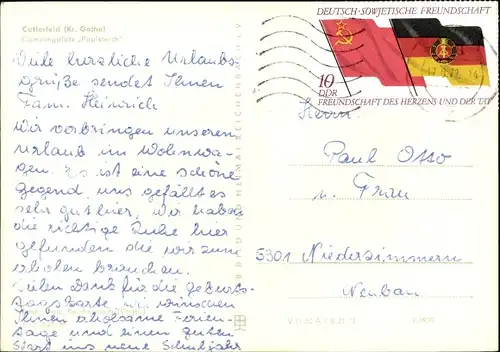 Catterfeld (Kr. Gotha)
Campingplatz „Paulsteich"
Viele herzliche Urlaubs-
grüße sendet Ihnen
Fam. Heinrich
Wir verbringen unseren
Urlaub im Wohnwa-
gen. Es ist eine schöne
Gegend, uns gefällt es
sehr gut hier, wir haben
die richtige Ruhe hier
gefunden die wir zum
erholen brauchen.
Vielen Dank für die Geburts-
tagskarte, wir wünschen
Ihnen erholsame Ferien-
tage und einen guten
Start ins neue Schuljahr
DEUTSCH-SOWJETISCHE FREUNDSCHAFT
10
DDR
FREUNDSCHAFT DES HERZENS UND DER TAT
Herrn
Paul Otto
u. Frau
5301 Niederzimmern
Neubau
BILD UND HEIMAT REICHENBACH